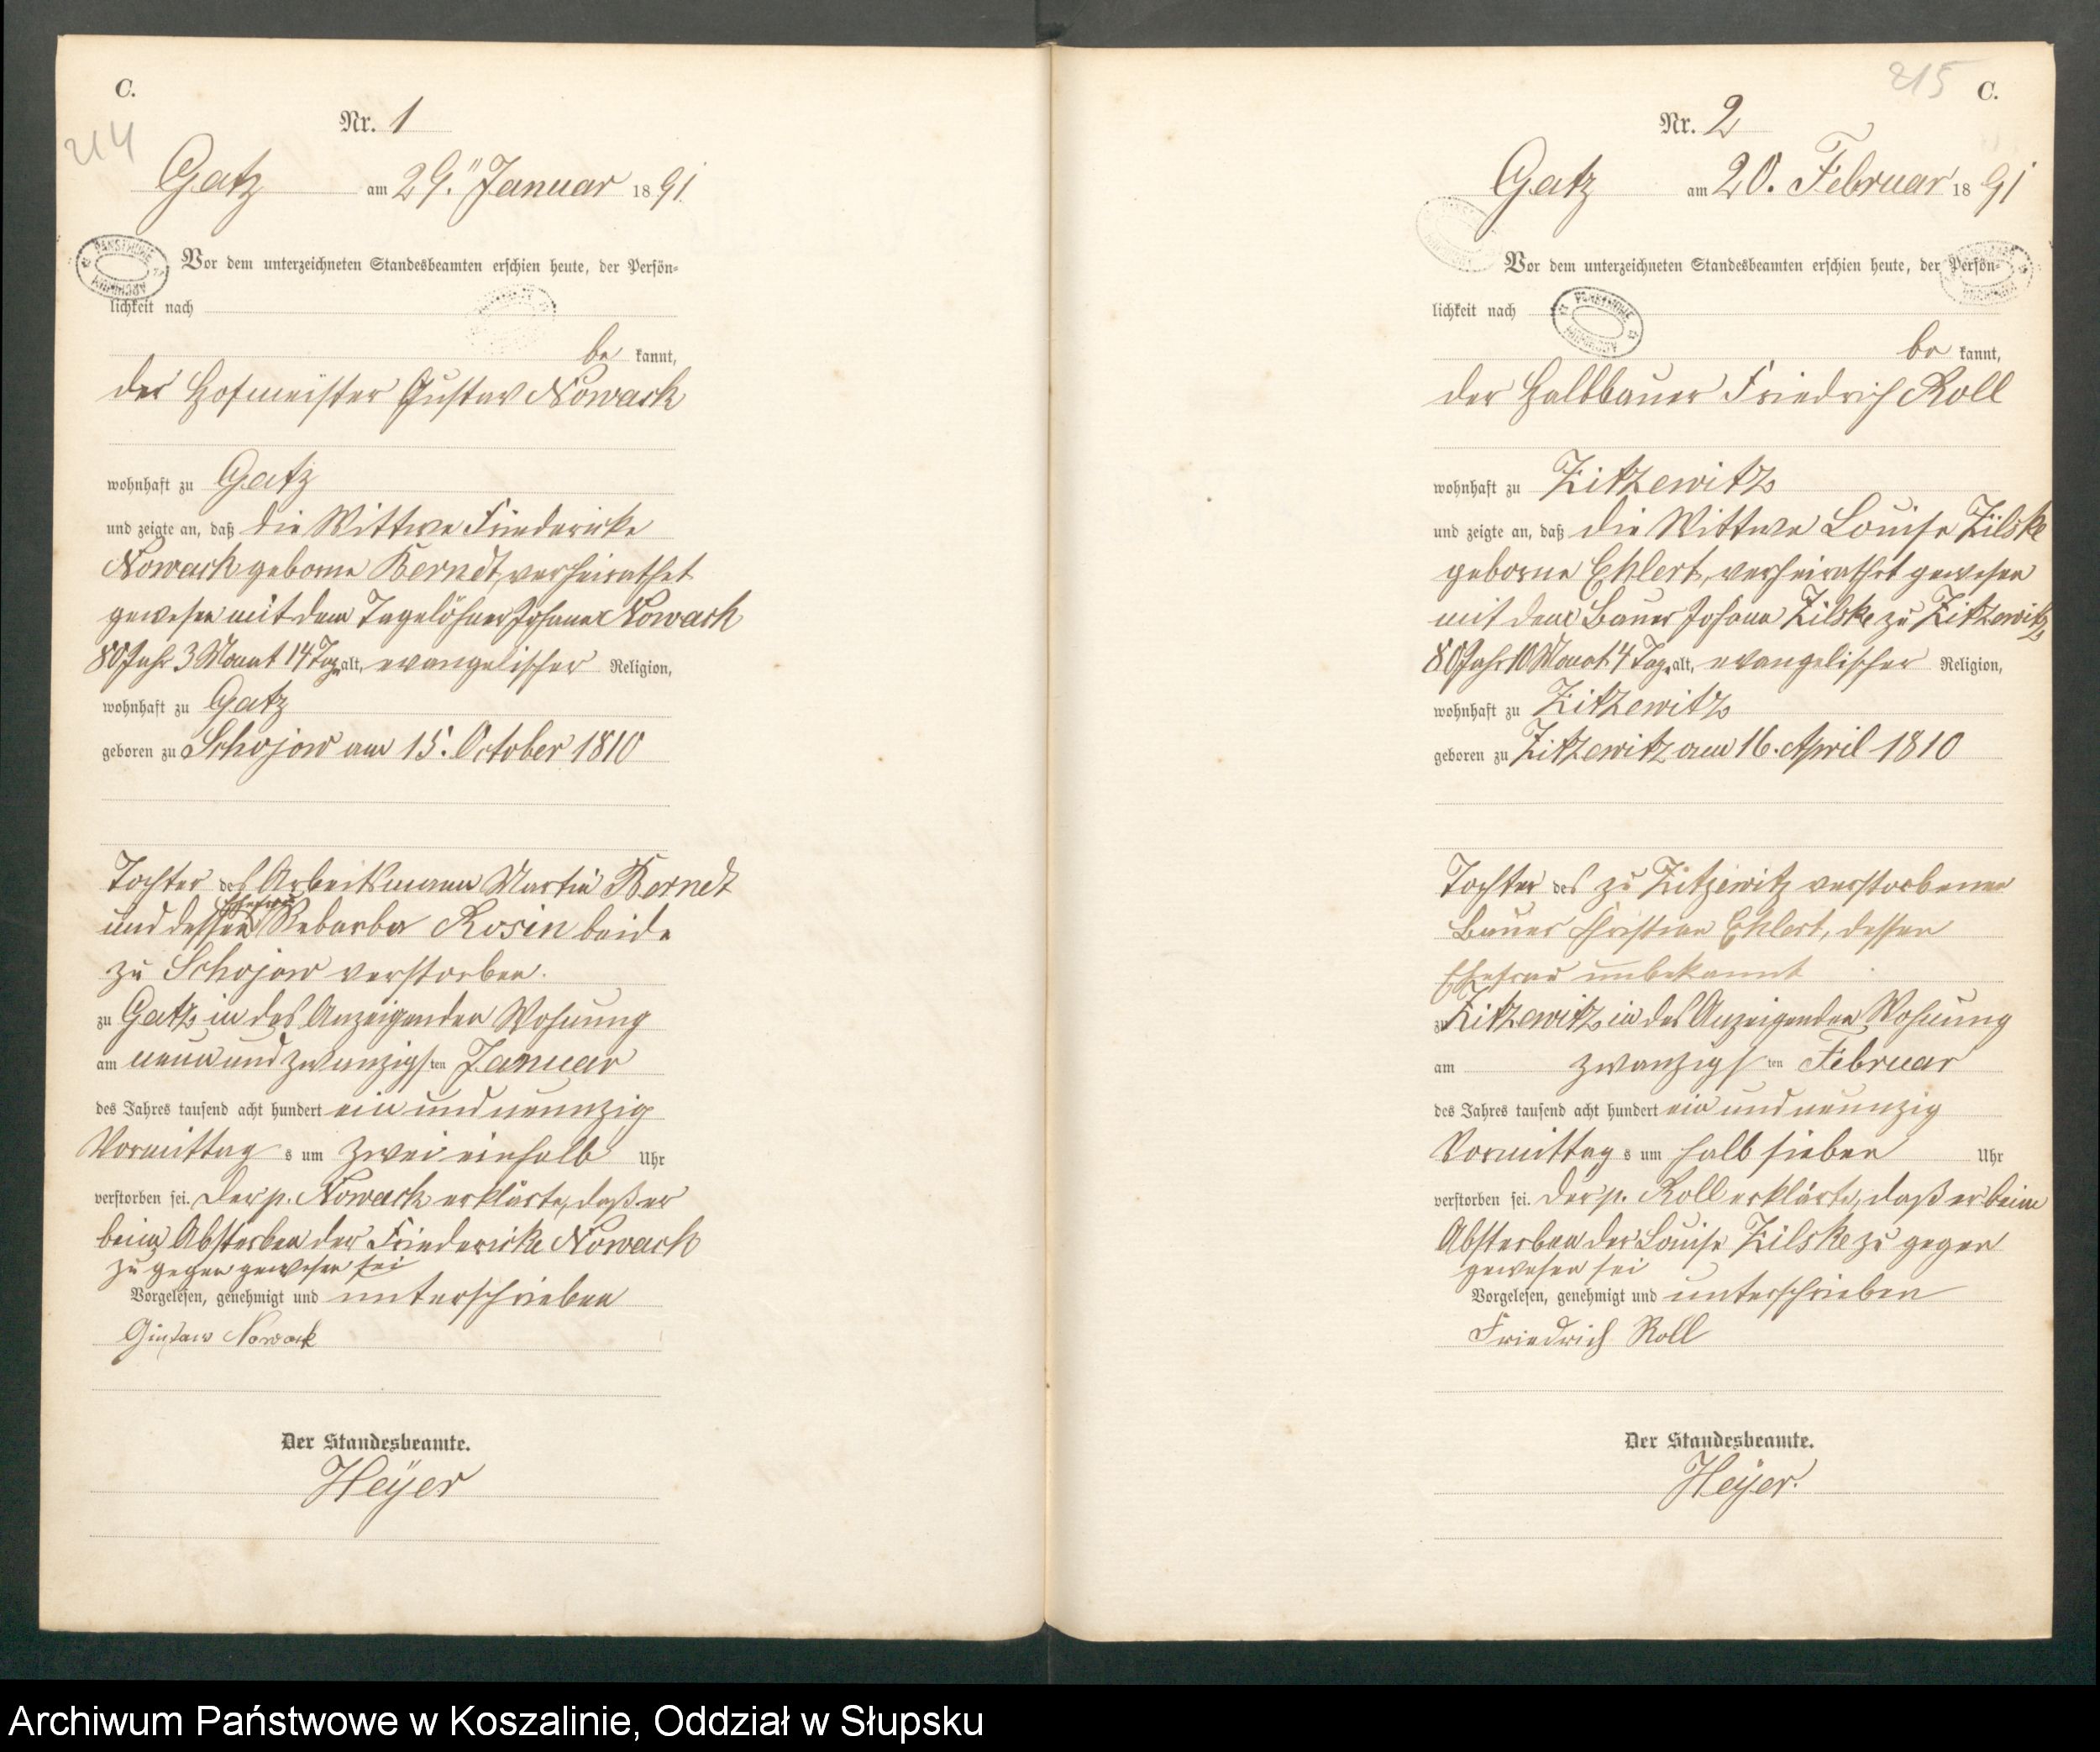 C.
214
Nr. 1
Gatz am 29. Januar 1891
Vor dem unterzeichneten Standesbeamten erschien heute, der Persön-
lichkeit nach
be kannt,
der Hofmeister Gustav Nowack
wohnhaft zu Gatz
und zeigte an, daß die Wittwe Friedericke
Nowack geborne Berndt, verheirathet
gewesen mit dem Tagelöhner Johann Nowack
80 Jahr 3 Monat 14 Tag alt, evangelischer Religion,
wohnhaft zu Gatz
geboren zu Schojow am 15. October 1810
Tochter des Arbeitsmann Martin Berndt
und dessen Ehefrau Barbara Rosin beide
zu Schojow verstorben.
zu Gatz in des Anzeigenden Wohnung
am neun und zwanzigsten Januar
des Jahres tausend acht hundert ein und neunzig
Vormittags um zwei einhalb Uhr
verstorben sei. Der p. Nowack erklärte, daß er
beim Absterben der Friedericke Nowack
zu gegen gewesen sei
Vorgelesen, genehmigt und unterschrieben
Gustaw Nowack
Der Standesbeamte.
Heyer
215 C.
Nr. 2
Gatz am 20. Februar 1891
Vor dem unterzeichneten Standesbeamten erschien heute, der Persön-
lichkeit nach
be kannt,
der Halbbauer Friedrich Roll
wohnhaft zu Zitzewitz
und zeigte an, daß die Wittwe Louise Zilske
geborne Ehlert, verheirathet gewesen
mit dem Bauer Johann Zilske zu Zitzewitz,
80 Jahr 10 Monat 4 Tag alt, evangelischer Religion,
wohnhaft zu Zitzewitz
geboren zu Zitzewitz am 16. April 1810
Tochter des zu Zitzewitz verstorbenen
Bauer Christian Ehlert, dessen
Ehefrau unbekannt
zu Zitzewitz in des Anzeigenden Wohnung
am zwanzigsten Februar
des Jahres tausend acht hundert ein und neunzig
Vormittags um halb sieben Uhr
verstorben sei. Der p. Roll erklärte, daß er beim
Absterben der Louise Zilske zu gegen
gewesen sei
Vorgelesen, genehmigt und unterschrieben
Friedrich Roll
Der Standesbeamte.
Heyer.
Archiwum Państwowe w Koszalinie, Oddział w Słupsku